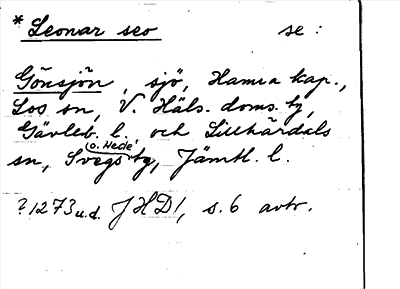 * Leonar seo se :
Gönsjön, sjö, Hamra kap.,
Los sn, V. Häls. doms. tg,
Gävleb. l. och Lillhärdals
sn, Svegs o. Hede tg, Jämtl. l.
? 1273 u.d. JHD 1, s. 6 avtr.